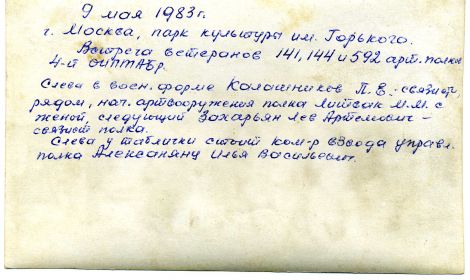 9 мая 1983г.
г. Москва, парк культуры им. Горького.
Встреча ветеранов 141, 144 и 592 арт. полков
4-й ОИПТАБр.
Слева в воен. форме Калашников П.Е. - связист,
рядом, нач. артвооружения полка Литвак М.М. с
женой, следующий Захарьян Лев Артемович -
связист полка.
Слева у таблички стоит ком-р взвода управл.
полка Алексанянц Илья Васильевич.